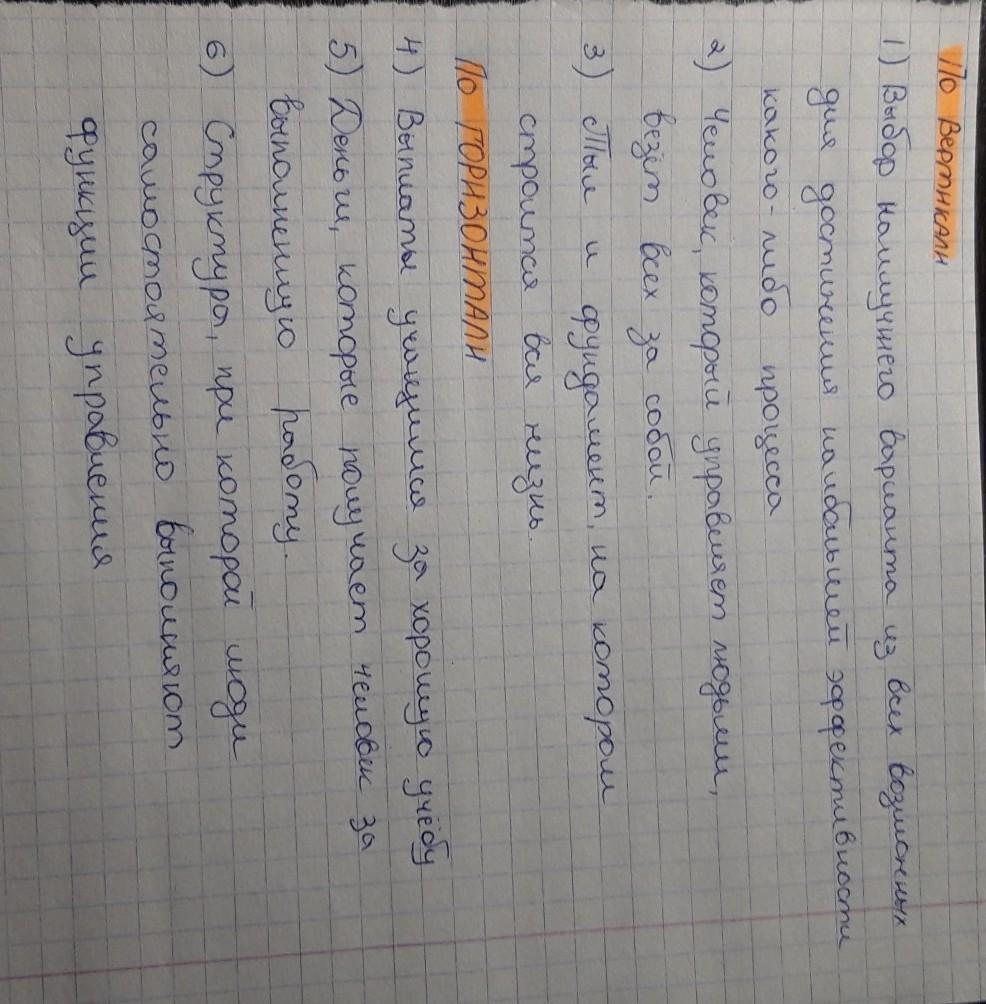 По Вертикали
1) Выбор наилучшего варианта из всех возможных
для достижения наибольшей эффективности
какого-либо процесса
2) Человек, который управляет людьми,
везёт всех за собой.
3) Тыл и фундамент, на котором
строится вся жизнь.
По ГОРИЗОНТАЛИ
4) Выплаты учащимся за хорошую учёбу
5) Деньги, которые получает человек за
выполненную работу.
6) Структура, при которой люди
самостоятельно выполняют
функции управления